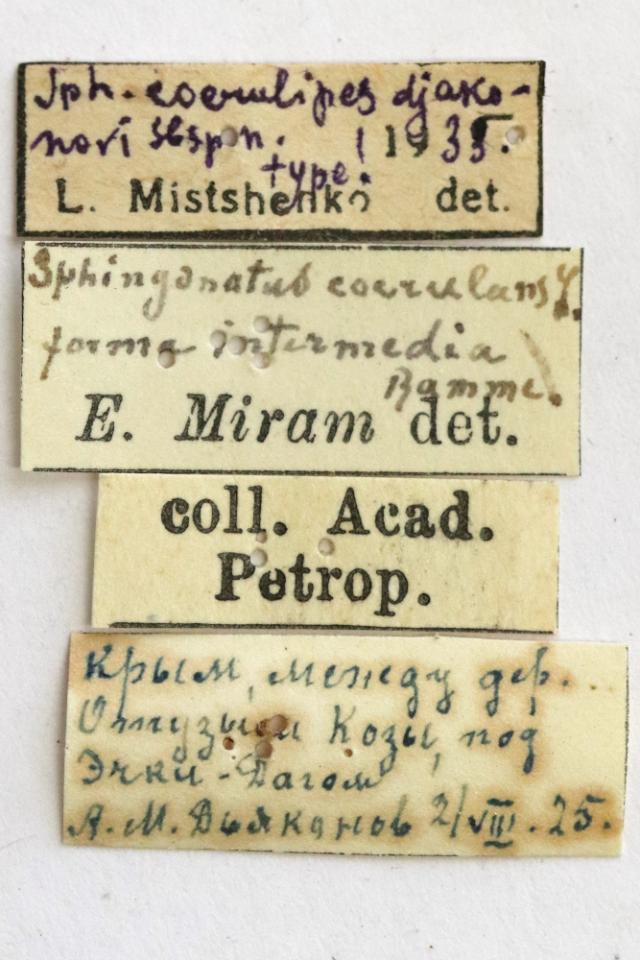 Sph. coerulipes djako-
novi sbsp. n. ! 1935.
type!
L. Mistshenko det.
Sphingonotus coerulans L.
forma intermedia
Ramme.
E. Miram det.
coll. Acad.
Petrop.
Крым, между дер.
Отузы и Козы, под
Эчки-Дагом
А. М. Дьяконов 2/VIII. 25.